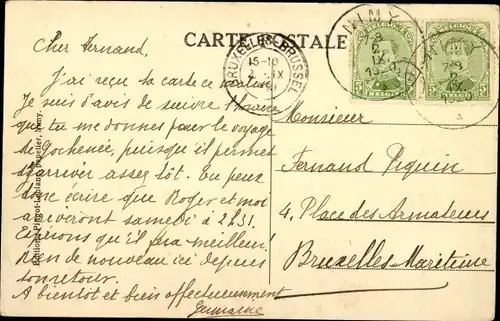 CARTE POSTALE
BRUXELLES-BRUSSEL
15-18
2 IX
NIMY
7-8
2
IX
BELGIQUE
5
BELGIQUE
5
7-8
2
IX
Cher Fernand,
J'ai reçu ta carte ce matin
Je suis d'avis de suivre l'horaire
que tu me donnes pour le voyage
de puisque il permet
d'arriver assez tôt. Tu peux
écrire que Roger et moi
arriverons samedi à 2h31.
Espérons qu'il fera meilleur.
Rien de nouveau ici depuis
ton retour.
A bientôt et bien affectueusement
Germaine
Monsieur
Fernand Piquin
4, Place des Armateurs
Bruxelles Maritime